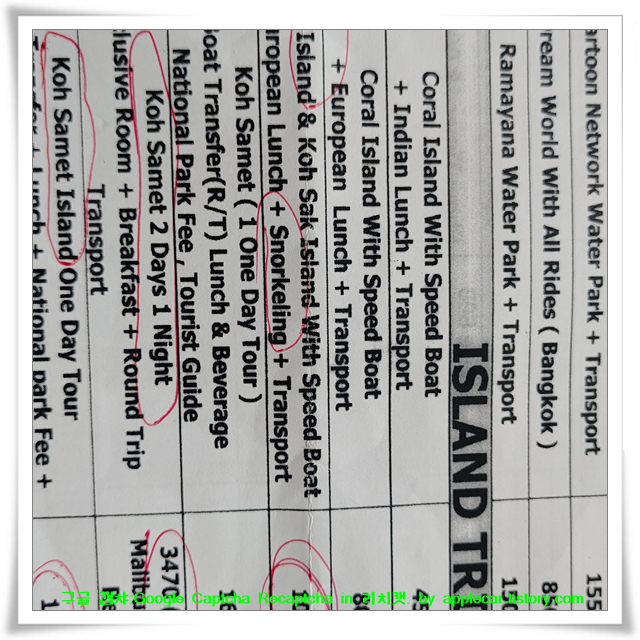 artoon Network Water Park + Transport
155
ream World With All Rides ( Bangkok )
Ramayana Water Park + Transport
ISLAND TR
Coral Island With Speed Boat
+ Indian Lunch + Transport
Coral Island With Speed Boat
+ European Lunch + Transport
Island & Koh Sak Island With Speed Boat
uropean Lunch + Snorkeling + Transport
Koh Samet ( 1 One Day Tour )
oat Transfer(R/T) Lunch & Beverage
National Park Fee , Tourist Guide
Koh Samet 2 Days 1 Night
347
lusive Room + Breakfast + Round Trip
Transport
Koh Samet Island One Day Tour
Transfer + Lunch + National park Fee +
구글 캡챠 Google Captcha Recaptcha in 리치캣 by applecar.tistory.com